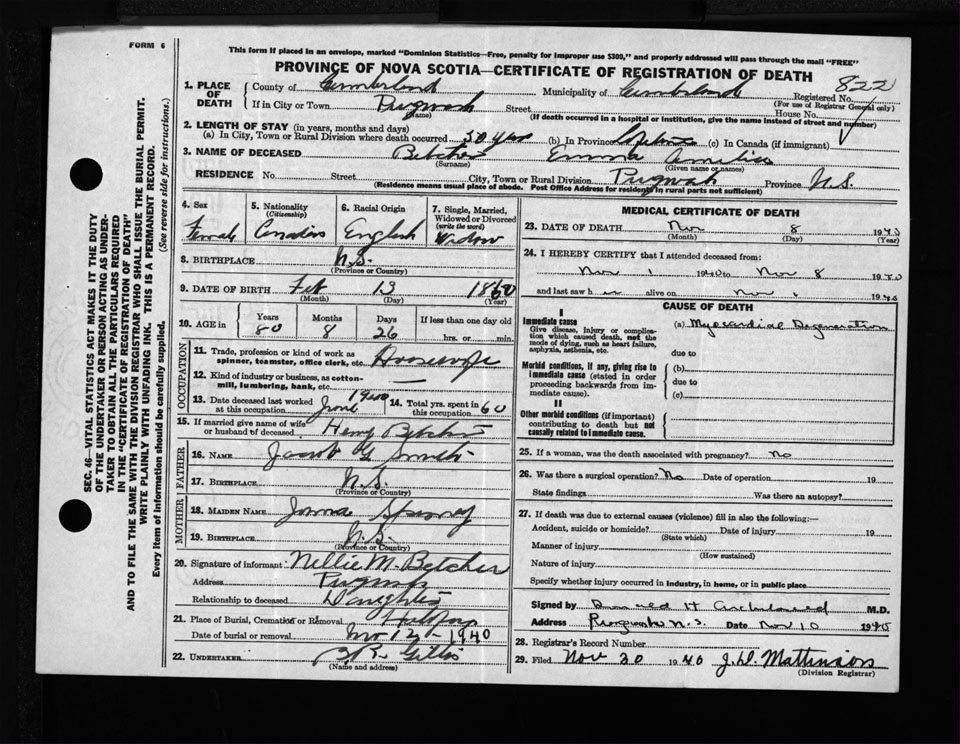 FORM 6
This form if placed in an envelope, marked "Dominion Statistics—Free, penalty for improper use $300," and properly addressed will pass through the mail "FREE"
PROVINCE OF NOVA SCOTIA—CERTIFICATE OF REGISTRATION OF DEATH
822
1. PLACE OF DEATH County of Cumberland Municipality of Cumberland Registered No.
(For use of Registrar General only)
If in City or Town Pugwash Street House No.
(Name) (If death occurred in a hospital or institution, give the name instead of street and number)
2. LENGTH OF STAY (in years, months and days)
(a) In City, Town or Rural Division where death occurred 50 years (b) In Province Lifetime (c) In Canada (if immigrant)
3. NAME OF DECEASED Betcher Emma Amelia
(Surname) (Given name or names)
RESIDENCE No. Street City, Town or Rural Division Pugwash Province N.S.
(Residence means usual place of abode. Post Office Address for residents in rural parts not sufficient)
4. Sex Female
5. Nationality (Citizenship) Canadian
6. Racial Origin English
7. Single, Married, Widowed or Divorced (write the word) Widow
8. BIRTHPLACE N.S.
(Province or Country)
9. DATE OF BIRTH Feb 13 1860
(Month) (Day) (Year)
10. AGE in Years 80 Months 8 Days 26 If less than one day old hrs. or min.
OCCUPATION
11. Trade, profession or kind of work as spinner, teamster, office clerk, etc. Housewife
12. Kind of industry or business, as cotton-mill, lumbering, bank, etc. —
13. Date deceased last worked at this occupation June 1940 14. Total yrs. spent in this occupation 60
15. If married give name of wife or husband of deceased Henry Betcher
FATHER
16. NAME Jacob G Smith
17. BIRTHPLACE N.S.
(Province or Country)
MOTHER
18. MAIDEN NAME Spinney
19. BIRTHPLACE N.S.
(Province or Country)
20. Signature of informant Nellie M. Betcher
Address Pugwash
Relationship to deceased Daughter
21. Place of Burial, Cremation or Removal
Date of burial or removal Nov 12 - 1940
22. UNDERTAKER Gillis
(Name and address)
MEDICAL CERTIFICATE OF DEATH
23. DATE OF DEATH Nov 8 1940
(Month) (Day) (Year)
24. I HEREBY CERTIFY that I attended deceased from:
Nov 1 1940 to Nov 8 1940
and last saw her alive on Nov 1940
CAUSE OF DEATH
I
Immediate cause
Give disease, injury or complication which caused death, not the mode of dying, such as heart failure, asphyxia, asthenia, etc.
(a) Myocardial Degeneration
due to
Morbid conditions, if any, giving rise to immediate cause (stated in order proceeding backwards from immediate cause).
(b)
due to
(c)
II
Other morbid conditions (if important) contributing to death but not causally related to immediate cause.
25. If a woman, was the death associated with pregnancy? No
26. Was there a surgical operation? No Date of operation 19
State findings Was there an autopsy?
27. If death was due to external causes (violence) fill in also the following:—
Accident, suicide or homicide? Date of injury 19
(State which)
Manner of injury
(How sustained)
Nature of injury
Specify whether injury occurred in industry, in home, or in public place
Signed by H Archibald M.D.
Address Pugwash N.S. Date Nov 10 1940
28. Registrar's Record Number
29. Filed Nov 30 1940 J.D. Mattinson
(Division Registrar)
SEC. 46—VITAL STATISTICS ACT MAKES IT THE DUTY
OF THE UNDERTAKER OR PERSON ACTING AS UNDER-
TAKER TO OBTAIN ALL THE PARTICULARS REQUIRED
IN THE "CERTIFICATE OF REGISTRATION OF DEATH"
AND TO FILE THE SAME WITH THE DIVISION REGISTRAR WHO SHALL ISSUE THE BURIAL PERMIT.
WRITE PLAINLY WITH UNFADING INK. THIS IS A PERMANENT RECORD.
Every item of information should be carefully supplied. (See reverse side for instructions.)